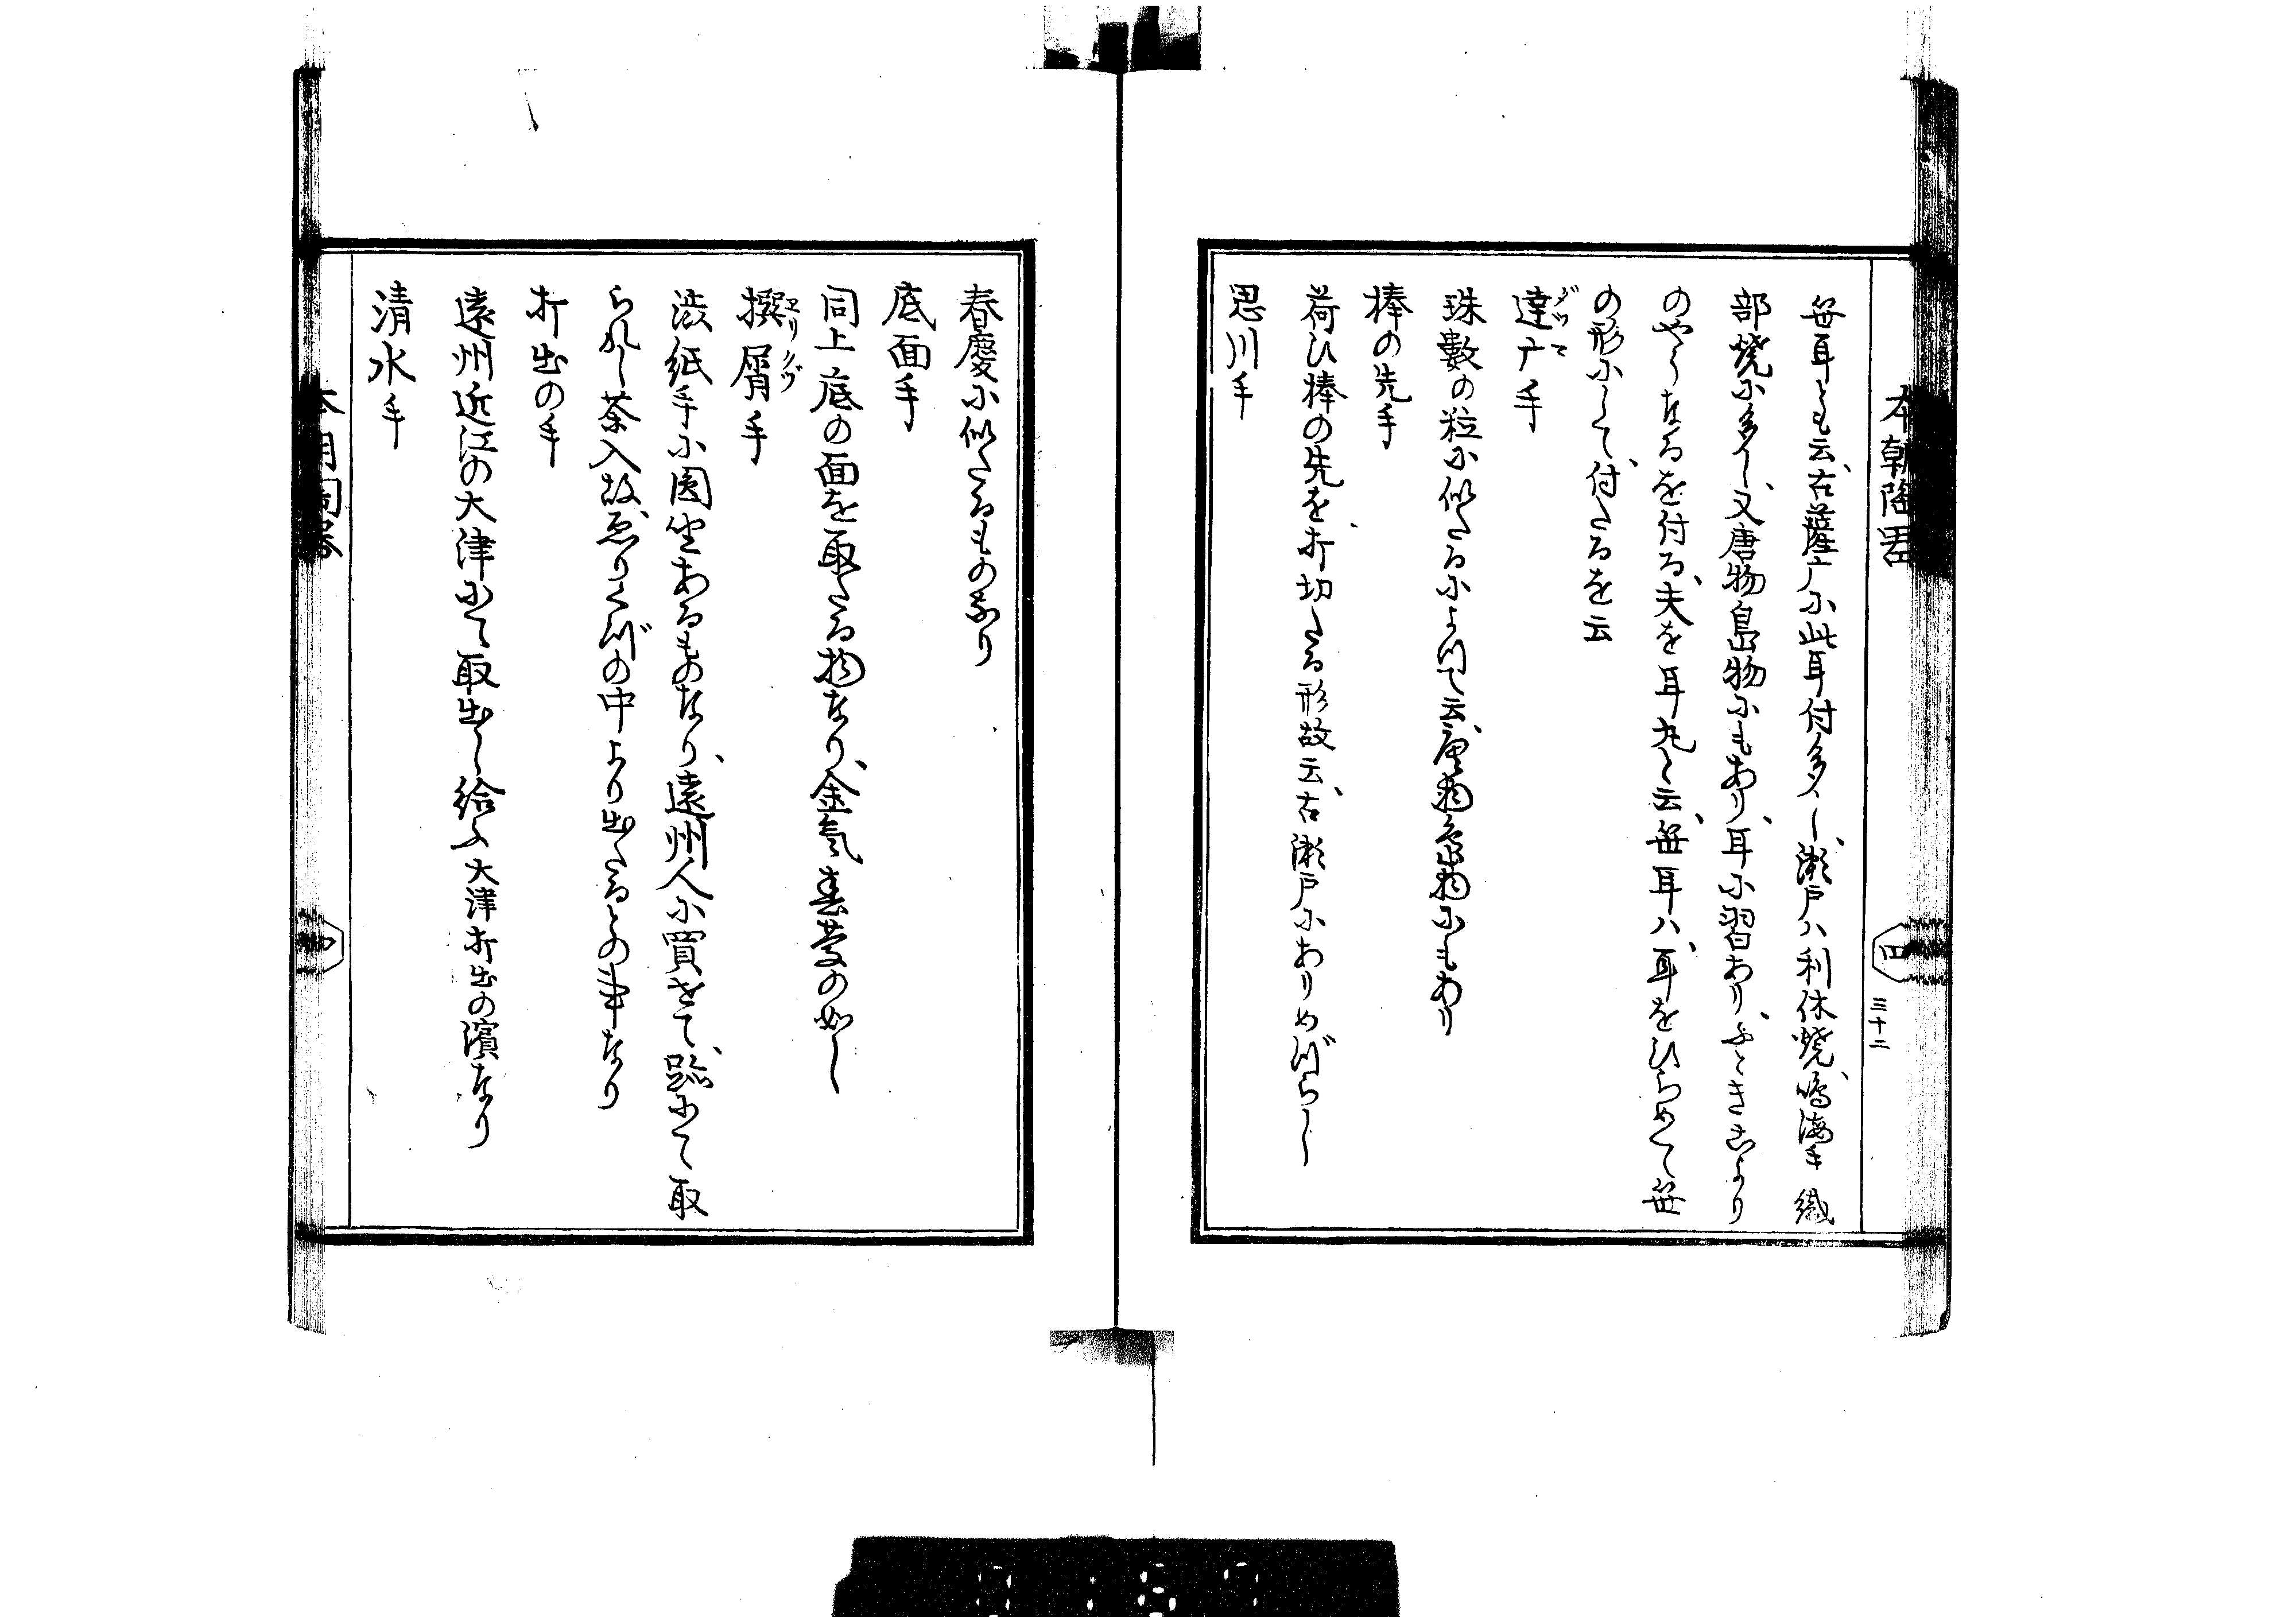 本朝陶器
四
三十二
笹耳とも云、古薩广に此耳付多し、瀬戸ハ利休焼、鳴海手 織
部焼に多し、又唐物島物にもあり、耳に習あり、ふときこより
のやうなるを付る、夫を耳丸と云、笹耳ハ、耳をひらめて、笹
の形にして、付たるを云
達广手
ダツマ
珠數の粒に似たるによつて云、唐物島物にもあり
棒の先手
荷ひ棒の先を、打切たる形故云、古瀬戸にありめづらし
思川手
春慶に似たるものなり
底面手
同上底の面を取たる物なり、金氣春慶の如し
撰屑手
ヱリクヅ
渋紙手に圓坐あるものなり、遠州人に買せて、跡にて取
られし茶入故、ゑりくづの中より出たるとの事なり
打出の手
遠州近江の大津にて取出し給ふ大津打出の濱なり
清水手